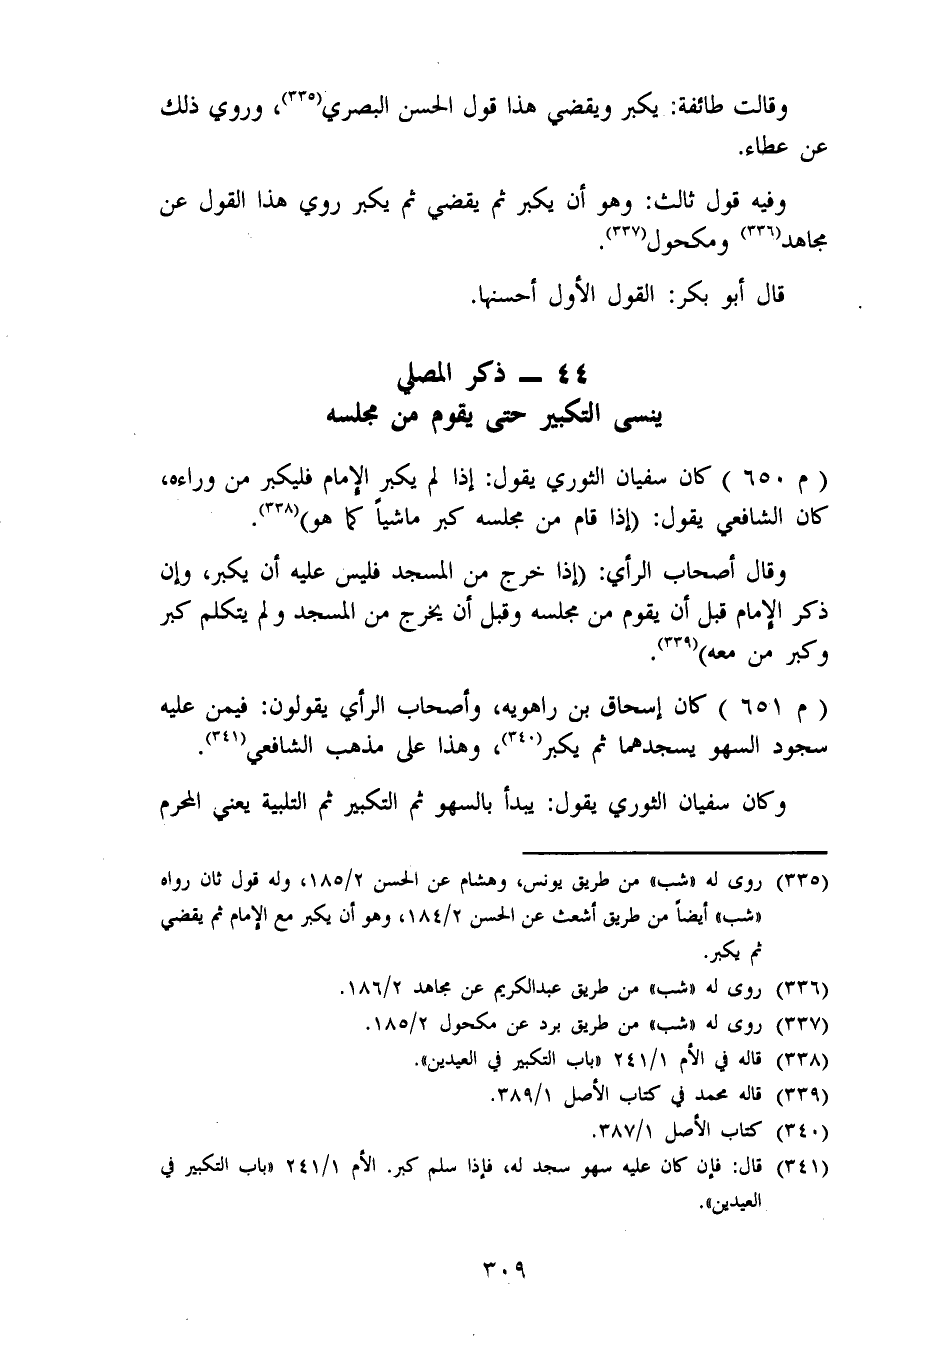 وقالت طائفة: يكبر ويقضي هذا قول الحسن البصري(٣٣٥)، وروي ذلك
عن عطاء.
وفيه قول ثالث: وهو أن يكبر ثم يقضي ثم يكبر روي هذا القول عن
مجاهد(٣٣٦) ومكحول(٣٣٧).
قال أبو بكر: القول الأول أحسنها.
٤٤ ــ ذكر المصلي
ينسى التكبير حتى يقوم من مجلسه
( م ٦٥٠ ) كان سفيان الثوري يقول: إذا لم يكبر الإمام فليكبر من وراءه،
كان الشافعي يقول: (إذا قام من مجلسه كبر ماشياً كما هو)(٣٣٨).
وقال أصحاب الرأي: (إذا خرج من المسجد فليس عليه أن يكبر، وإن
ذكر الإمام قبل أن يقوم من مجلسه وقبل أن يخرج من المسجد ولم يتكلم كبر
وكبر من معه)(٣٣٩).
( م ٦٥١ ) كان إسحاق بن راهويه، وأصحاب الرأي يقولون: فيمن عليه
سجود السهو يسجدهما ثم يكبر(٣٤٠)، وهذا على مذهب الشافعي(٣٤١).
وكان سفيان الثوري يقول: يبدأ بالسهو ثم التكبير ثم التلبية يعني المحرم
(٣٣٥) روى له «شب» من طريق يونس، وهشام عن الحسن ١٨٥/٢، وله قول ثان رواه
«شب» أيضاً من طريق أشعث عن الحسن ١٨٤/٢، وهو أن يكبر مع الإمام ثم يقضي
ثم يكبر.
(٣٣٦) روى له «شب» من طريق عبدالكريم عن مجاهد ١٨٦/٢.
(٣٣٧) روى له «شب» من طريق برد عن مكحول ١٨٥/٢.
(٣٣٨) قاله في الأم ٢٤١/١ «باب التكبير في العيدين».
(٣٣٩) قاله محمد في كتاب الأصل ٣٨٩/١.
(٣٤٠) كتاب الأصل ٣٨٧/١.
(٣٤١) قال: فإن كان عليه سهو سجد له، فإذا سلم كبر. الأم ٢٤١/١ «باب التكبير في
العيدين».
٣٠٩